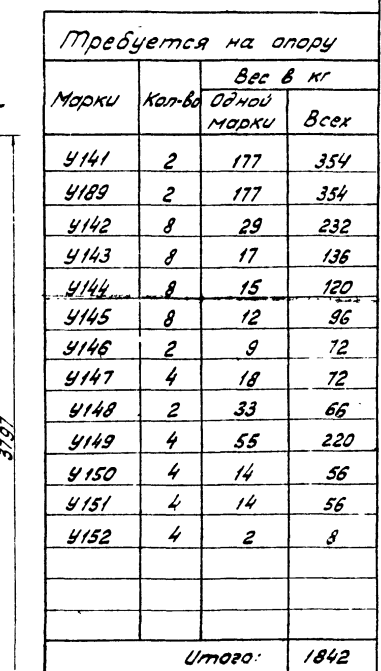 Требуется на опору
Марки Кол-во Вес в кг
Одной марки Всех
У141 2 177 354
У189 2 177 354
У142 8 29 232
У143 8 17 136
У144 8 15 120
У145 8 12 96
У146 2 9 72
У147 4 18 72
У148 2 33 66
У149 4 55 220
У150 4 14 56
У151 4 14 56
У152 4 2 8
Итого: 1842
3797